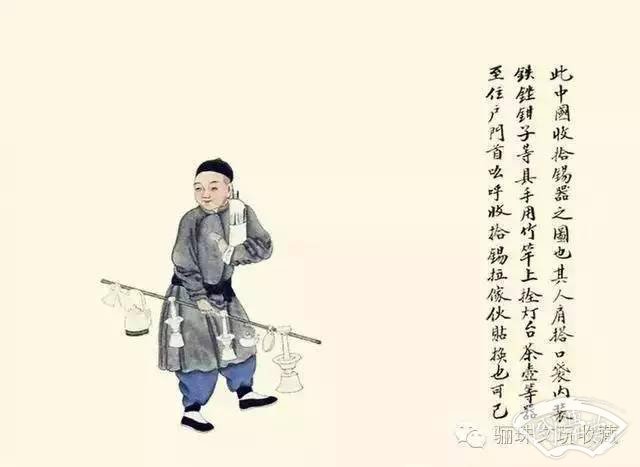 此中國收拾錫器之圖也其人肩搭口袋內裝
鉄銼鉗子等具手用竹竿上拴灯台茶壺等器
至住戶門首吆呼收拾錫拉傢伙貼換也可已
骊珠文玩收藏